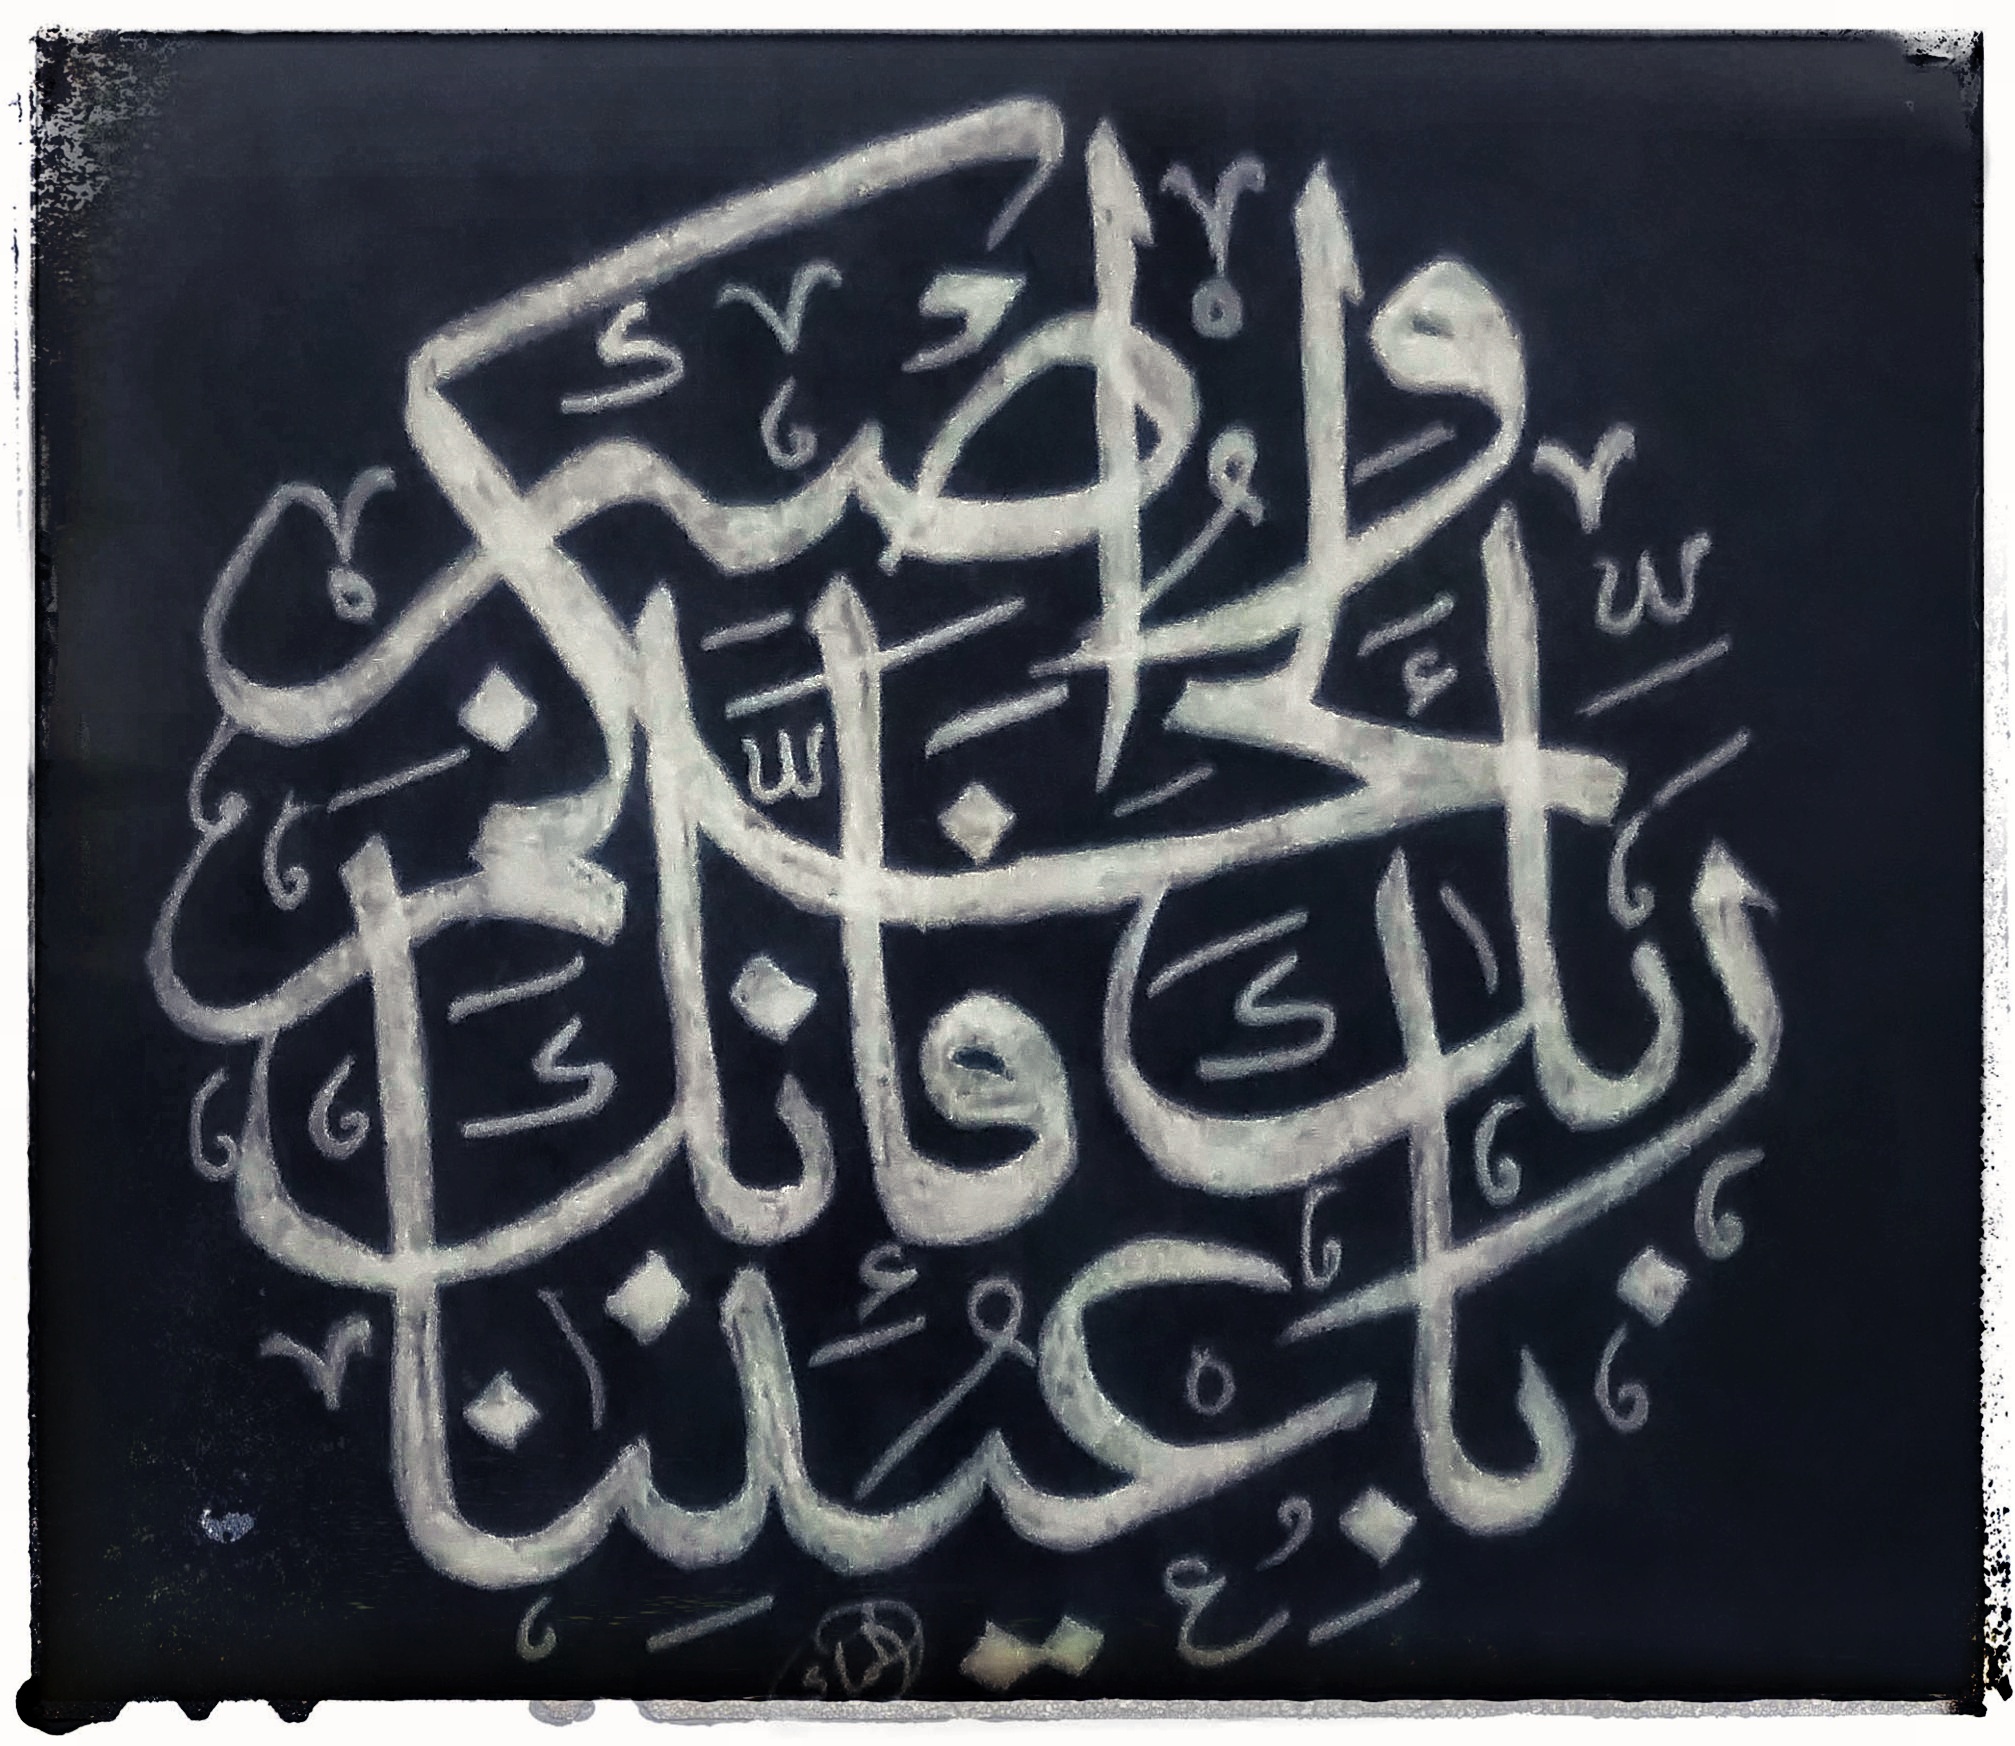 واصبر لحكم
ربك فإنك
بأعيننا